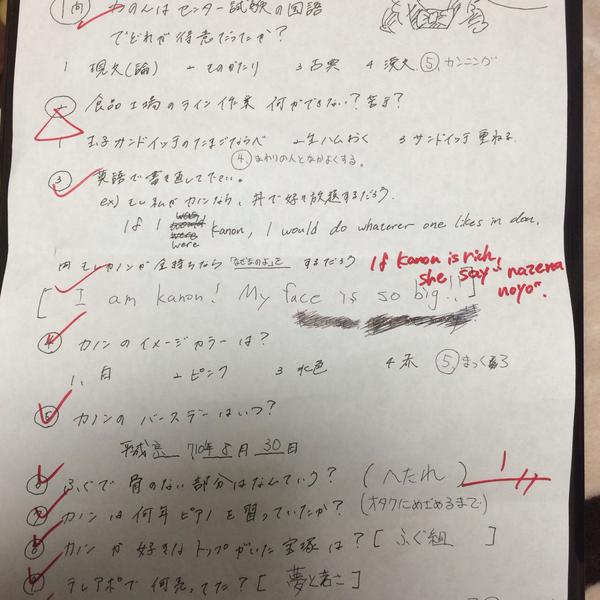 ① 問 かのんはセンター試験の国語
でどれが得意だったか?
1 現文(論) 2 ものがたり 3 古典 4 漢文 ⑤ カンニング
② 食品工場のライン作業 何ができない?苦手?
1 玉子サンドイッチのたまごならべ 2 生ハムおく 3 サンドイッチ重ねる
④ まわりの人となかよくする。
③ 英語で書き直して下さい。
ex) もし私がカノンなら、丼で好き放題するだろう.
If I were kanon, I would do whatever one likes in don.
問 もしカノンが金持ちなら「なぜなのよ」と するだろう
If kanon is rich,
she say "nazena
noyo".
[ I am kanon! My face is so big!! ]
④ カノンのイメージカラーは?
1, 白 2 ピンク 3 水色 4 赤 ⑤ まっくろ
⑤ カノンのバースデーはいつ?
平成 710年 8月 30日
⑥ ふぐで骨のない部分はなんていう? (へたれ)
⑦ カノンは何年ピアノを習っていたか? (オタクにめざめるまで)
⑧ カノンが好きなトップがいた宝塚は? [ ふぐ組 ]
⑨ テレアポで何売ってた? [ 夢と若さ ]